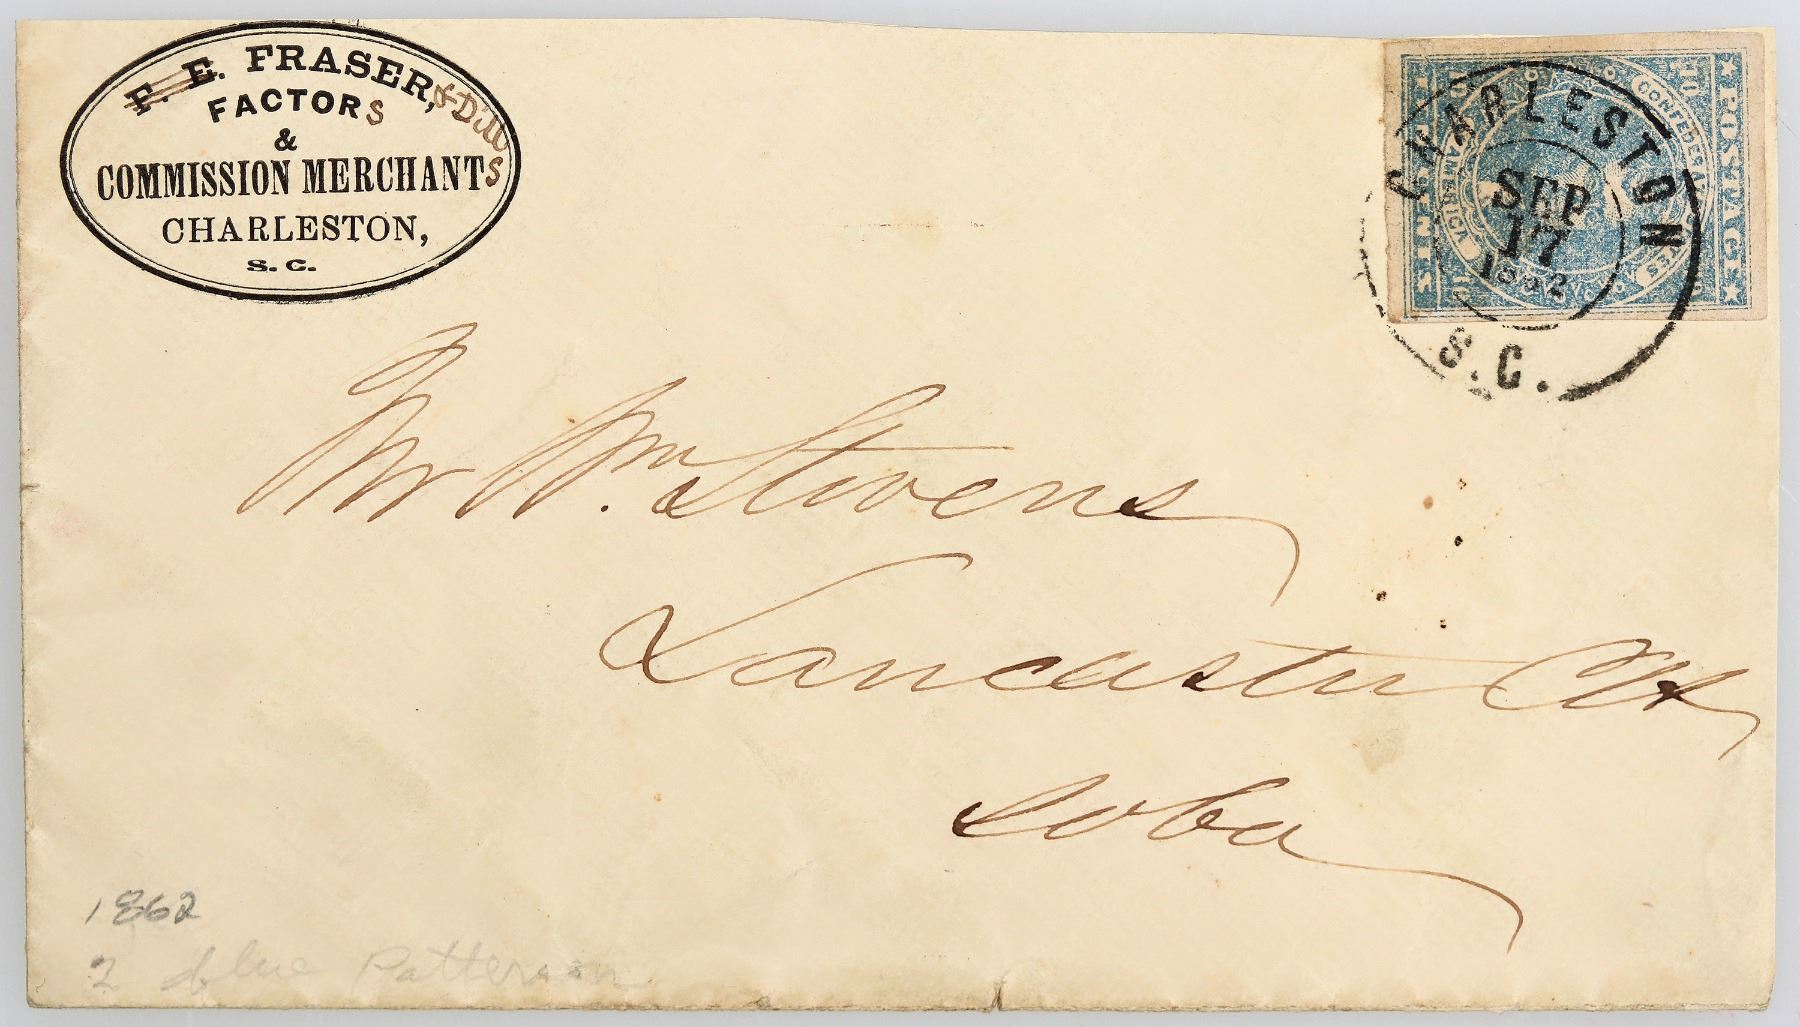 F. E. FRASER, & Dill
FACTORS
&
COMMISSION MERCHANTS
CHARLESTON,
S. C.
POSTAGE
CONFEDERATE STATES
OF AMERICA
TEN CENTS
10 10
CHARLESTON
SEP
17
1862
S.C.
Mr Wm. Stevens
Lancaster CH
So Ca
1862
2 blue Patterson